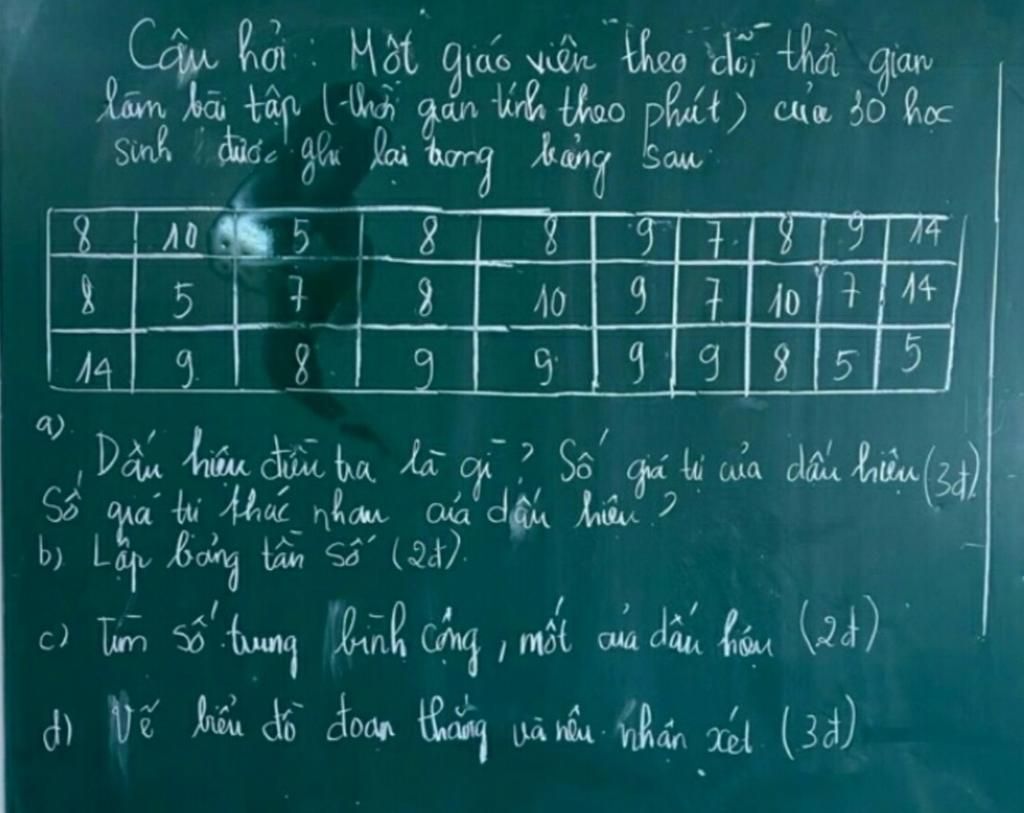 Câu hỏi: Một giáo viên theo dõi thời gian
làm bài tập (thời gan tính theo phút) của 30 học
sinh được ghi lại trong bảng sau
8 10 5 8 8 9 7 8 9 14
8 5 7 8 10 9 7 10 7 14
14 9 8 9 9 9 9 8 5 5
a)
Dấu hiệu điều tra là gì? Số giá trị của dấu hiệu (3đ)
Số giá trị khác nhau của dấu hiệu?
b) Lập bảng tần số (2đ).
c) Tìm số trung bình cộng, mốt của dấu hiệu (2đ)
d) Vẽ biểu đồ đoạn thẳng và nêu nhận xét (3đ)